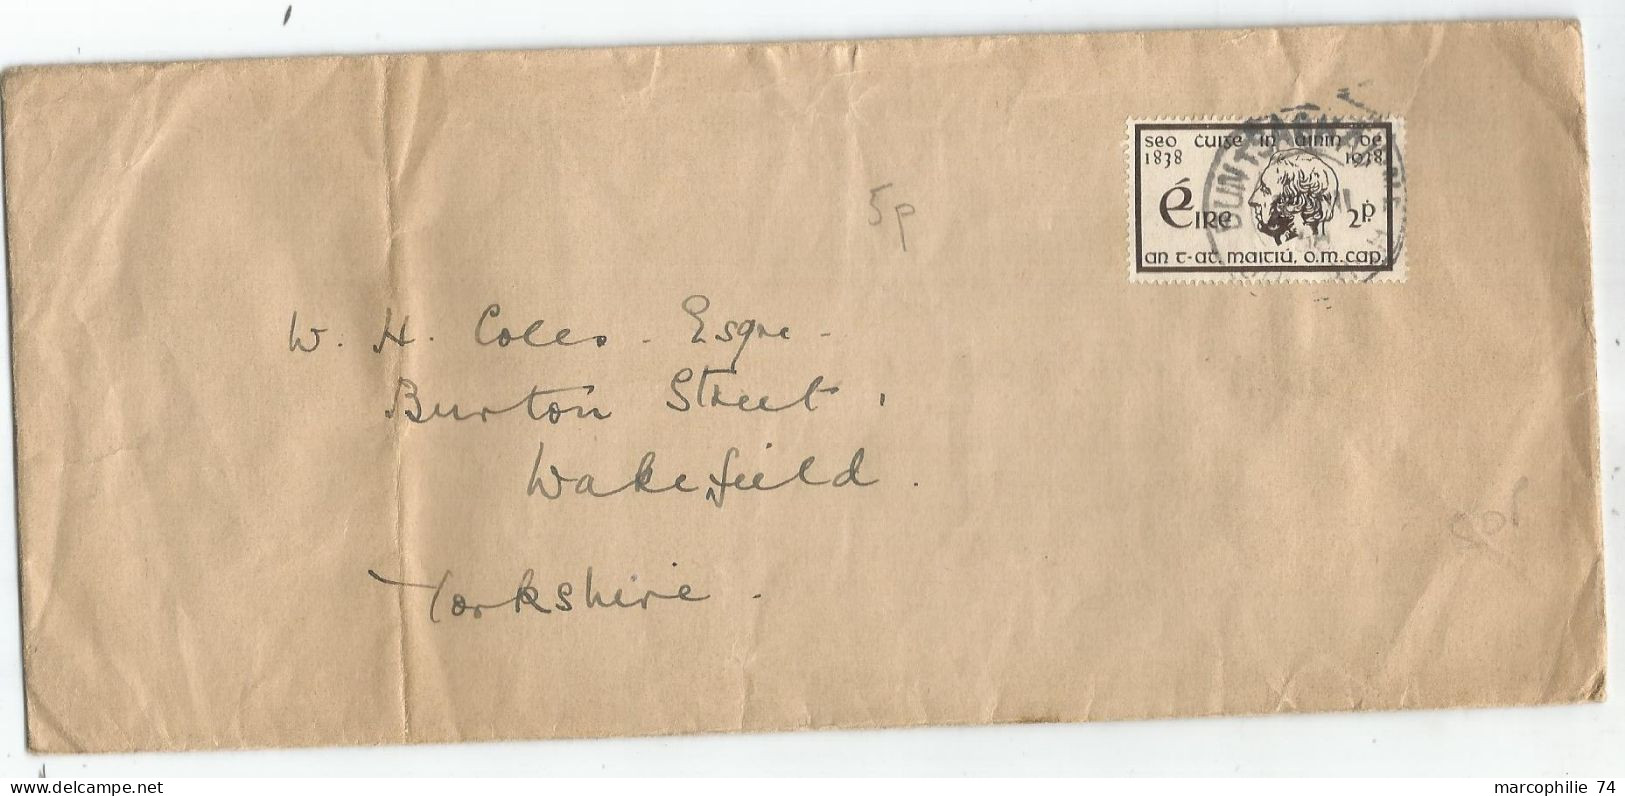 seo ċuize in ainm dé
1838 1938
Éire 2ṗ.
an t-aṫ. maitiú, o.m. cap.
5p
W. H. Coles. Esqre -
Burton Street,
Wakefield.
Yorkshire.
marcophilie 74